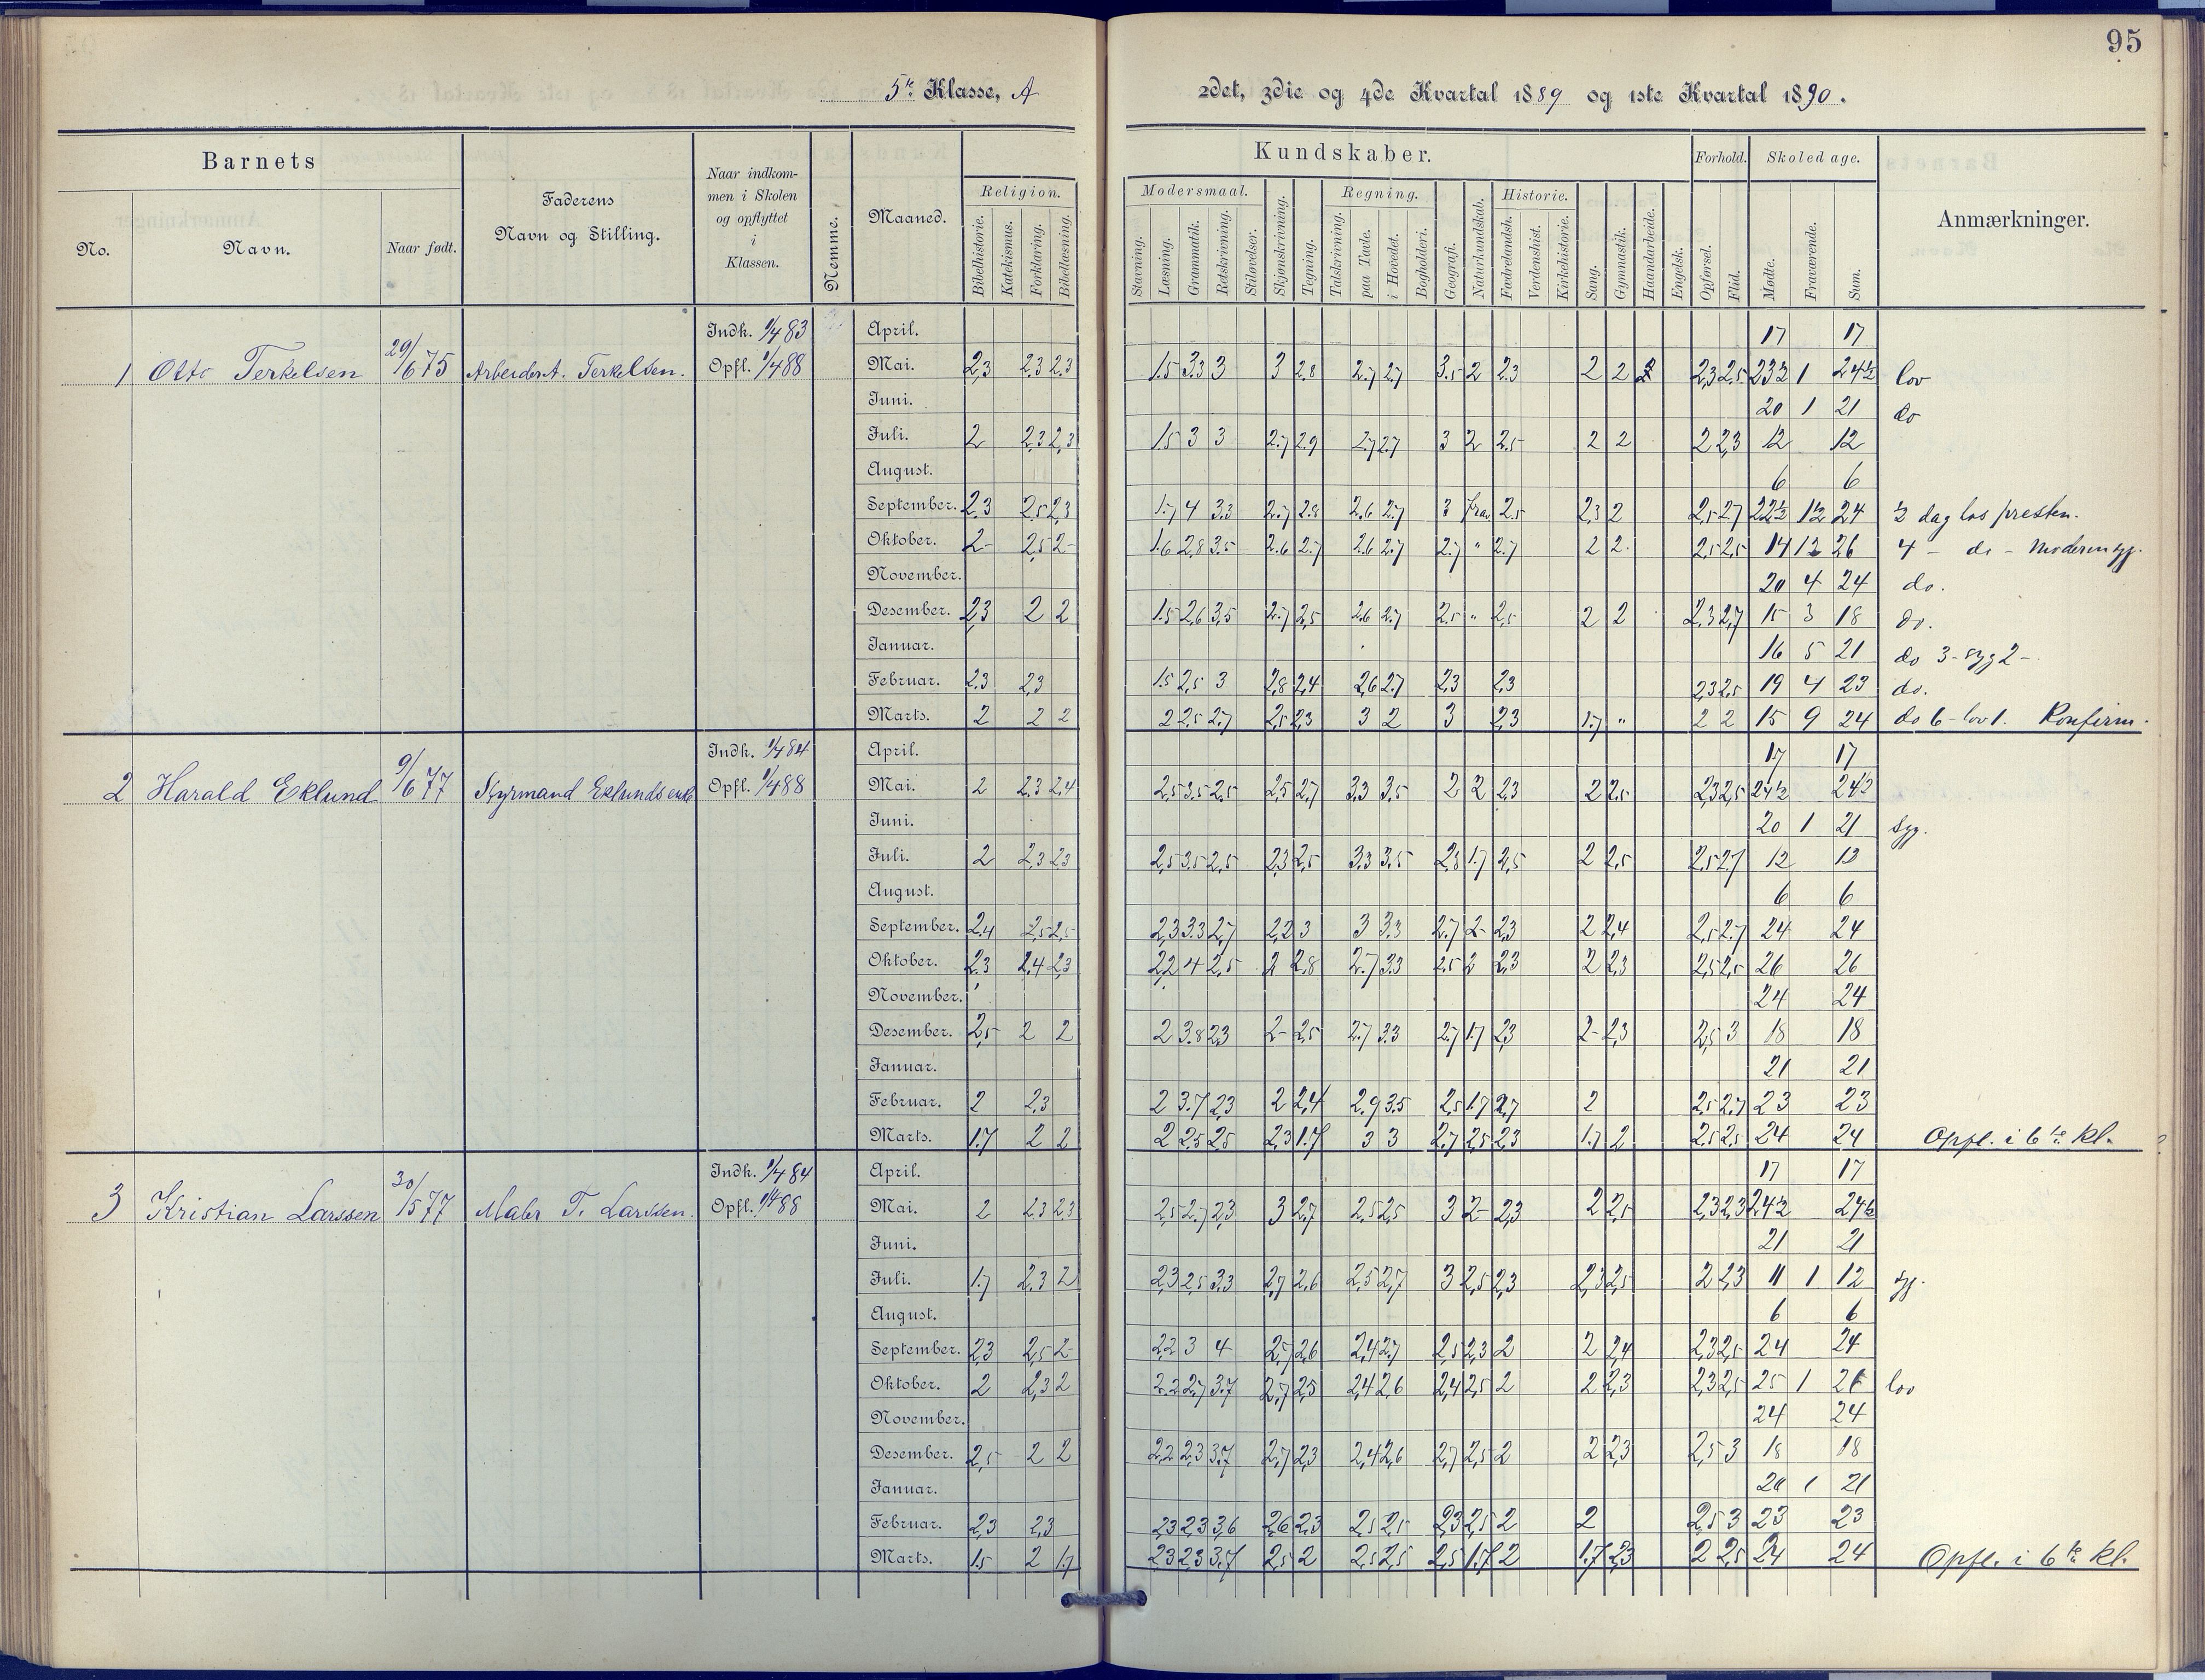 95
5te Klasse, A
2det, 3die og 4de Kvartal 1889 og 1ste Kvartal 1890.
Barnets
No.
Navn.
Naar født.
Faderens
Navn og Stilling.
Naar indkom-
men i Skolen
og opflyttet
i
Klassen.
Nemme.
Maaned.
Kundskaber.
Religion.
Bibelhistorie.
Katekismus.
Forklaring.
Bibellæsning.
Modersmaal.
Stavning.
Læsning.
Grammatik.
Retskrivning.
Stiløvelser.
Skjønskrivning.
Tegning.
Regning.
Talskrivning.
paa Tavle.
i Hovedet.
Bogholderi.
Geografi.
Naturkundskab.
Historie.
Fædrelandsh.
Verdenshist.
Kirkehistorie.
Sang.
Gymnastik.
Haandarbeide.
Engelsk.
Forhold.
Opførsel.
Flid.
Skoledage.
Mødte.
Fraværende.
Sum.
Anmærkninger.
1 Otto Terkelsen 29/6 75 Arbeider A. Terkelsen.
Indk. 1/4 83
Opfl. 1/4 88
April. 17 17
Mai. 2,3 2.3 2.3 1.5 3.3 3 3 2.8 2.7 2.7 3.5 2 2.3 2 2 2,3 2,5 23½ 1 24½ lov
Juni. 20 1 21 do
Juli. 2 2,3 2,3 1.5 3 3 2.7 2.9 2.7 2.7 3 2 2.5 2 2 2 2,3 12 12
August. 6 6
September. 2,3 2.5 2,3 1.7 4 3.3 2.7 2.8 2.6 2.7 3 frav. 2.5 2,3 2 2,5 2,7 22½ 1½ 24 ½ dag hos presten.
Oktober. 2- 2,5 2- 1.6 2,8 3.5 2.6 2.7 2.6 2.7 2.7 " 2.7 2 2 2,5 2,5 14 12 26 4 - do -
November. 20 4 24 do.
Desember. 2,3 2 2 1.5 2,6 3,5 2.7 2,5 2.6 2.7 2.5 " 2,5 2 2 2.3 2,7 15 3 18 do.
Januar. 16 5 21 do 3 - syg 2 -
Februar. 2.3 2,3 1.5 2,5 3 2,8 2,4 2,6 2.7 2,3 2,3 2,3 2,5 19 4 23 do.
Marts. 2 2 2 2 2.5 2.7 2,5 2,3 3 2 3 2,3 1.7 " 2 2 15 9 24 do 6 - lov 1. Konfirm.
2 Harald Eklund 9/6 77 Styrmand Eklunds enke
Indk. 1/4 84
Opfl. 1/4 88
April. 17 17
Mai. 2 2.3 2,4 2,5 3.5 2.5 2,5 2,7 3.3 3.5 2 2 2,3 2 2.5 2,3 2,5 24½ 24½
Juni. 20 1 21 syg.
Juli. 2 2,3 2,3 2,5 3.5 2,5 2,3 2,5 3.3 3.5 2,8 1.7 2,5 2 2,5 2.5 2.7 12 12
August. 6 6
September. 2.4 2,5 2,5 2,3 3.3 2,7 2,2 3 3 3.3 2.7 2- 2,3 2 2,4 2,5 2.7 24 24
Oktober. 2.3 2,4 2,3 2,2 4 2,5 2 2,8 2.7 3.3 2.5 2 2,3 2 2,3 2,5 2,5 26 26
November. 24 24
Desember. 2,5 2 2 2 3.8 2,3 2- 2,5 2.7 3.3 2.7 1.7 2,3 2- 2,3 2,5 3 18 18
Januar. 21 21
Februar. 2 2,3 2 3.7 2,3 2 2,4 2.9 3.5 2,5 1.7 2,7 2 2,5 2.7 23 23
Marts. 1.7 2 2 2 2.5 2.5 2,3 1.7 3 3 2.7 2,5 2,3 1.7 2 2,5 2,5 24 24 Opfl. i 6te Kl.
3 Kristian Larssen 30/5 77 Maler T. Larssen.
Indk. 1/4 84
Opfl. 1/4 88
April. 17 17
Mai. 2 2.3 2,3 2,5 2.7 2,3 3 2,7 2,5 2,5 3 2- 2,3 2 2,5 2,3 2,3 24½ 24½
Juni. 21 21
Juli. 1.7 2,3 2 2,3 2,5 3.3 2,7 2,6 2,5 2,7 3 2,5 2,3 2,3 2,5 2 2,3 11 1 12 syg.
August. 6 6
September. 2,3 2,5 2- 2,2 3 4 2,7 2,6 2,4 2,7 2,5 2,3 2 2 2,4 2,3 2,5 24 24
Oktober. 2 2,3 2 2.2 2.7 3.7 2,7 2,5 2,4 2,6 2,4 2,5 2 2 2,3 2,3 2,5 25 1 26 lov
November. 24 24
Desember. 2,5 2 2 2,2 2,3 3.7 2,7 2,3 2,4 2,6 2,7 2,5 2 2 2,3 2,5 3 18 18
Januar. 20 1 21
Februar. 2,3 2,3 2,3 2,3 3,6 2,6 2,3 2,5 2,5 2,3 2,5 2 2 2,5 3 23 23
Marts. 1.5 2 1.7 2,3 2,3 3.7 2,5 2 2,5 2,5 2,5 1.7 2 1.7 2,3 2 2,5 24 24 Opfl. i 6te Kl.